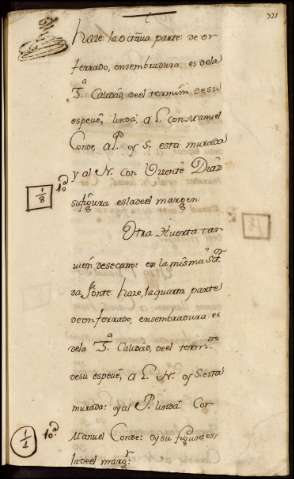 haze la octava parte de vn
ferrado, en sembradura es de la
Calidad, de el termin de su
espeue, linda: a L con Manuel
Conde, a P. of S. esta murada
y al N. con Vicente Diaz
su figura es la de el margen
1/8
10
Otra Huerta tan
vien de secano: en la misma
da fonte haze, la quarta parte
de vn ferrado, en sembradura es
de la Calidad, de el
de su espeue, a L. N. of S esta
murada: y al P. linda Con
Manuel Conde: y su figura es
la de el marg
1/4
10